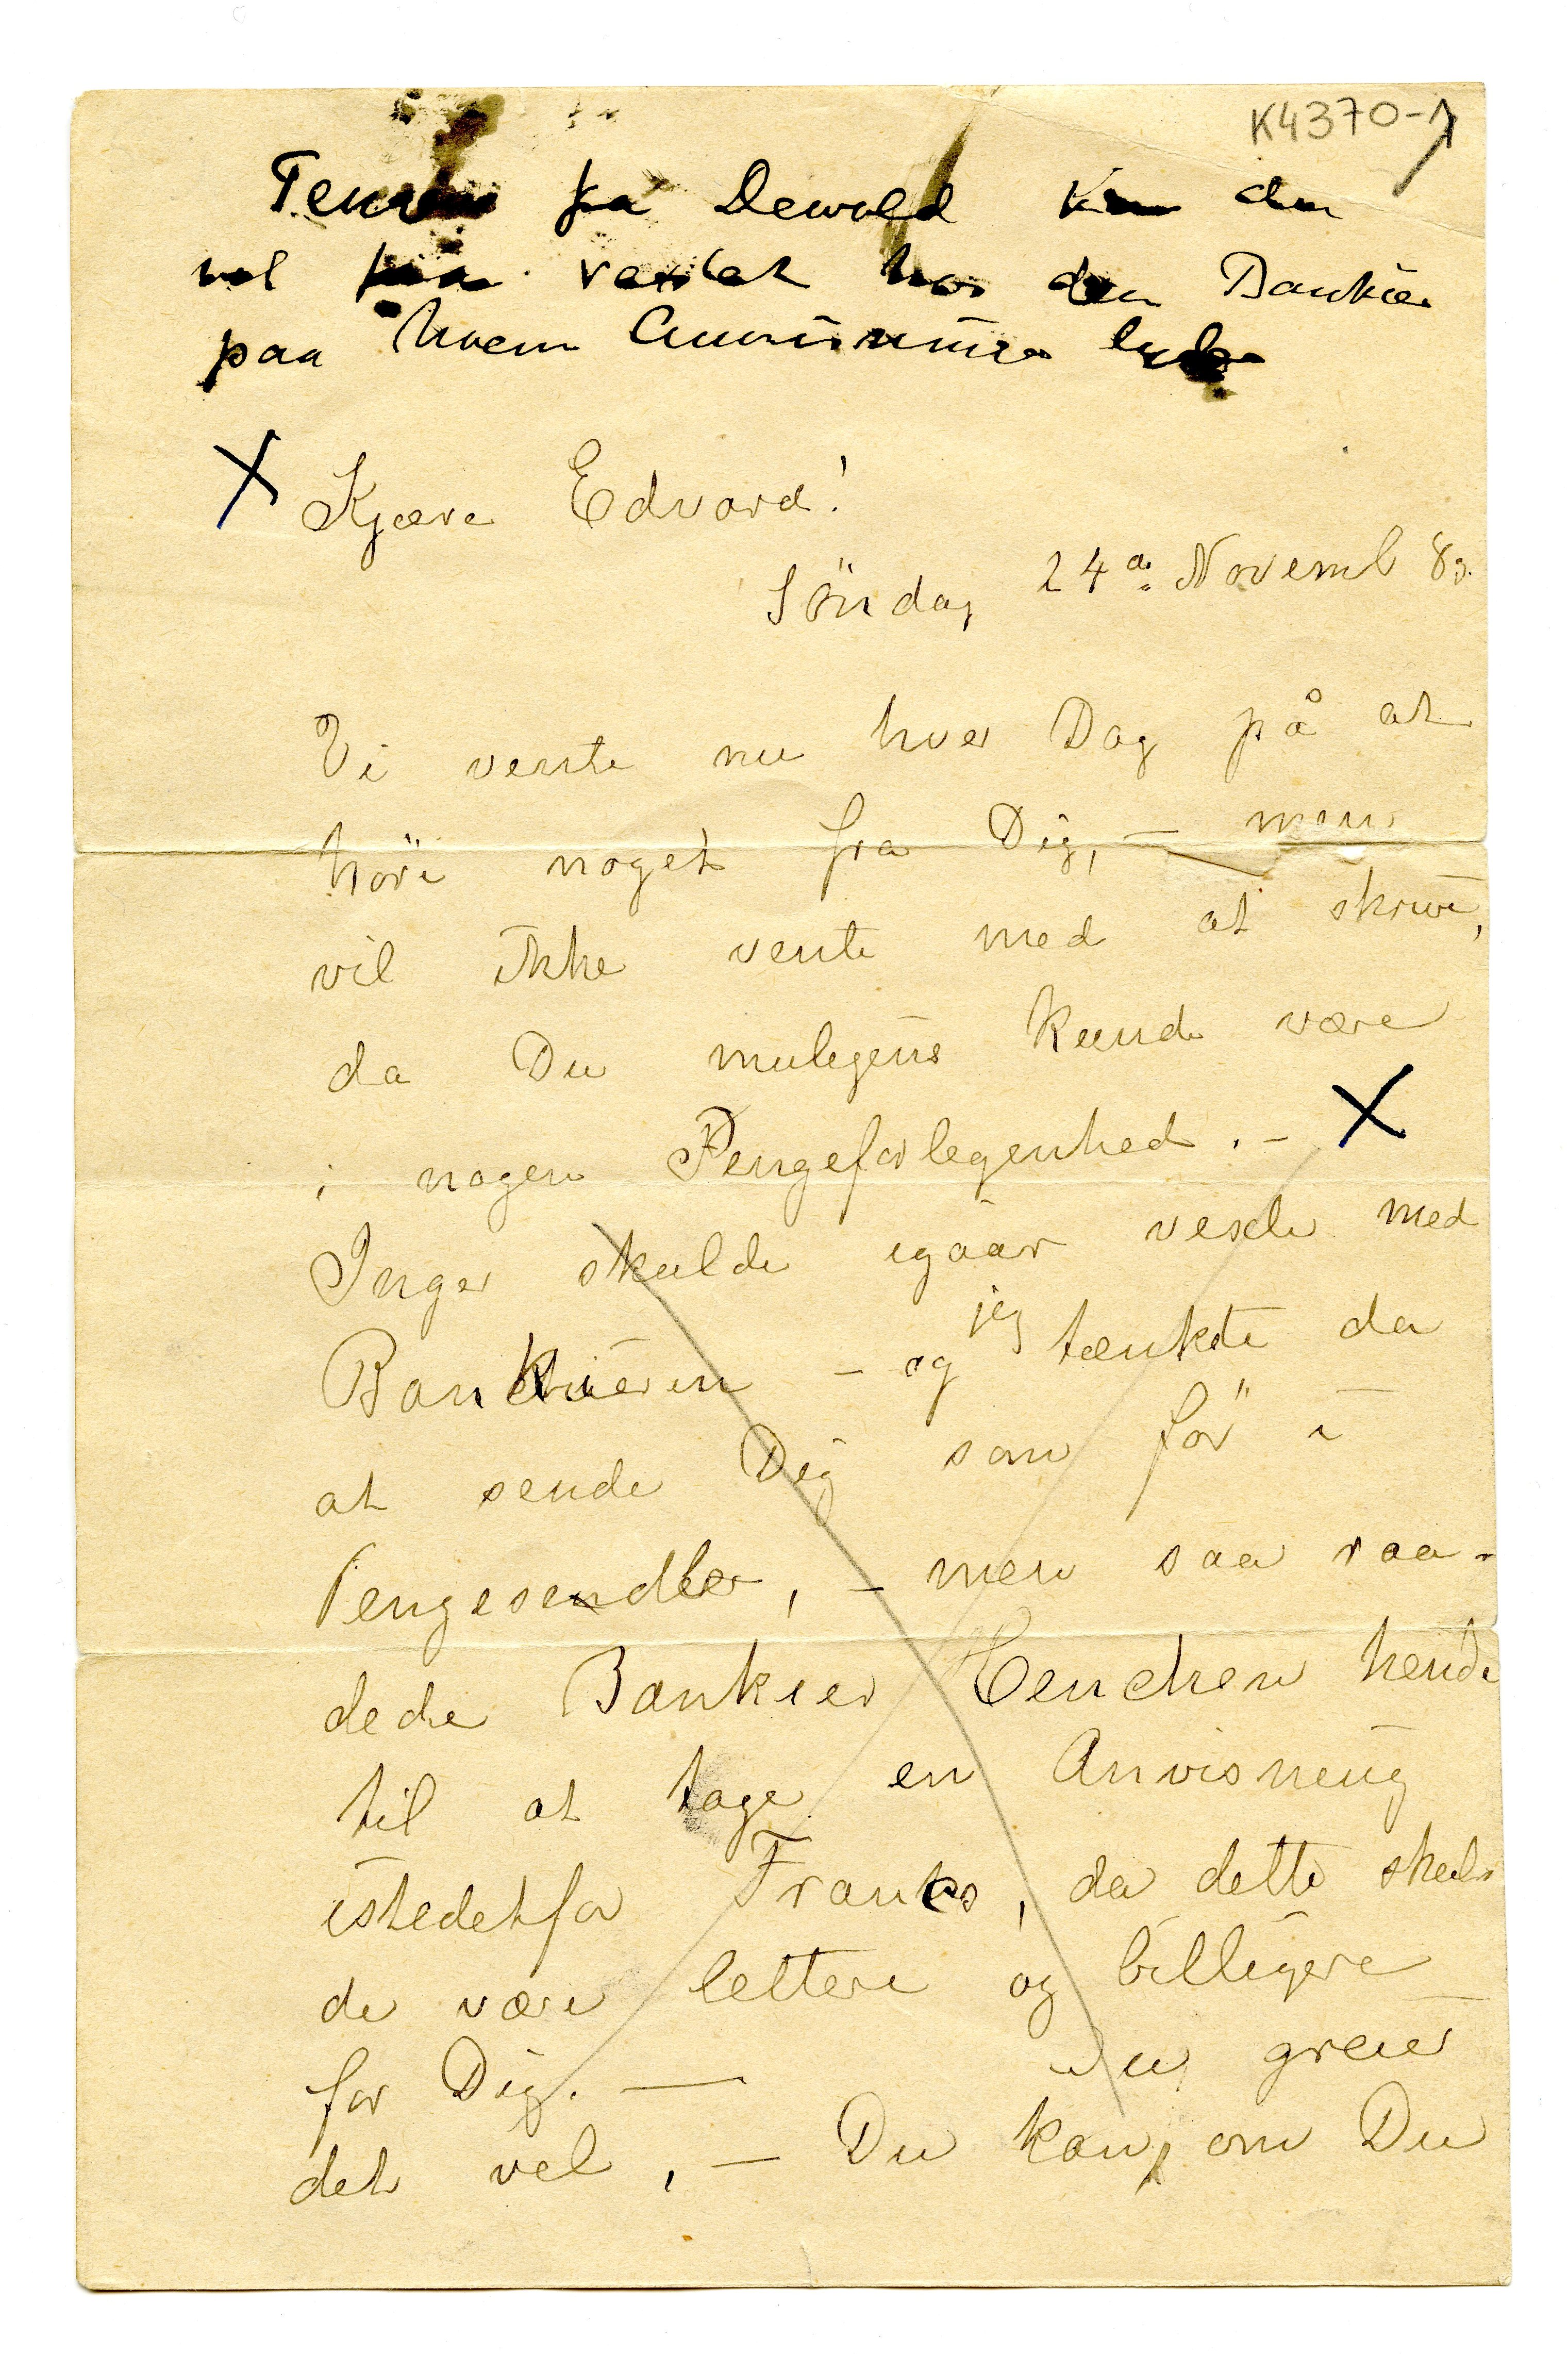 K4370-1
fra Dewald Kan du
vel faa vexlet hos den Bankier
paa hvem Anvisningen lyder
X Kjære Edvard!
Söndag 24de Novemb 89.
Vi vente nu hver Dag på at
höre noget fra Dig, – men
vil ikke vente med at skrive,
da Du muligens kunde være
i nogen Pengeforlegenhed. – X
Inger skulde igaar vexle med
Bankieren – og jeg tænkte da
at sende Dig som för i
Pengesendler, – men saa raa-
dede Bankier Henchen hende
til at tage en Anvisning
istedetfor Francs, da dette skul-
de være lettere og billigere
for Dig. — Du greier
det vel, – Du kan, om Du